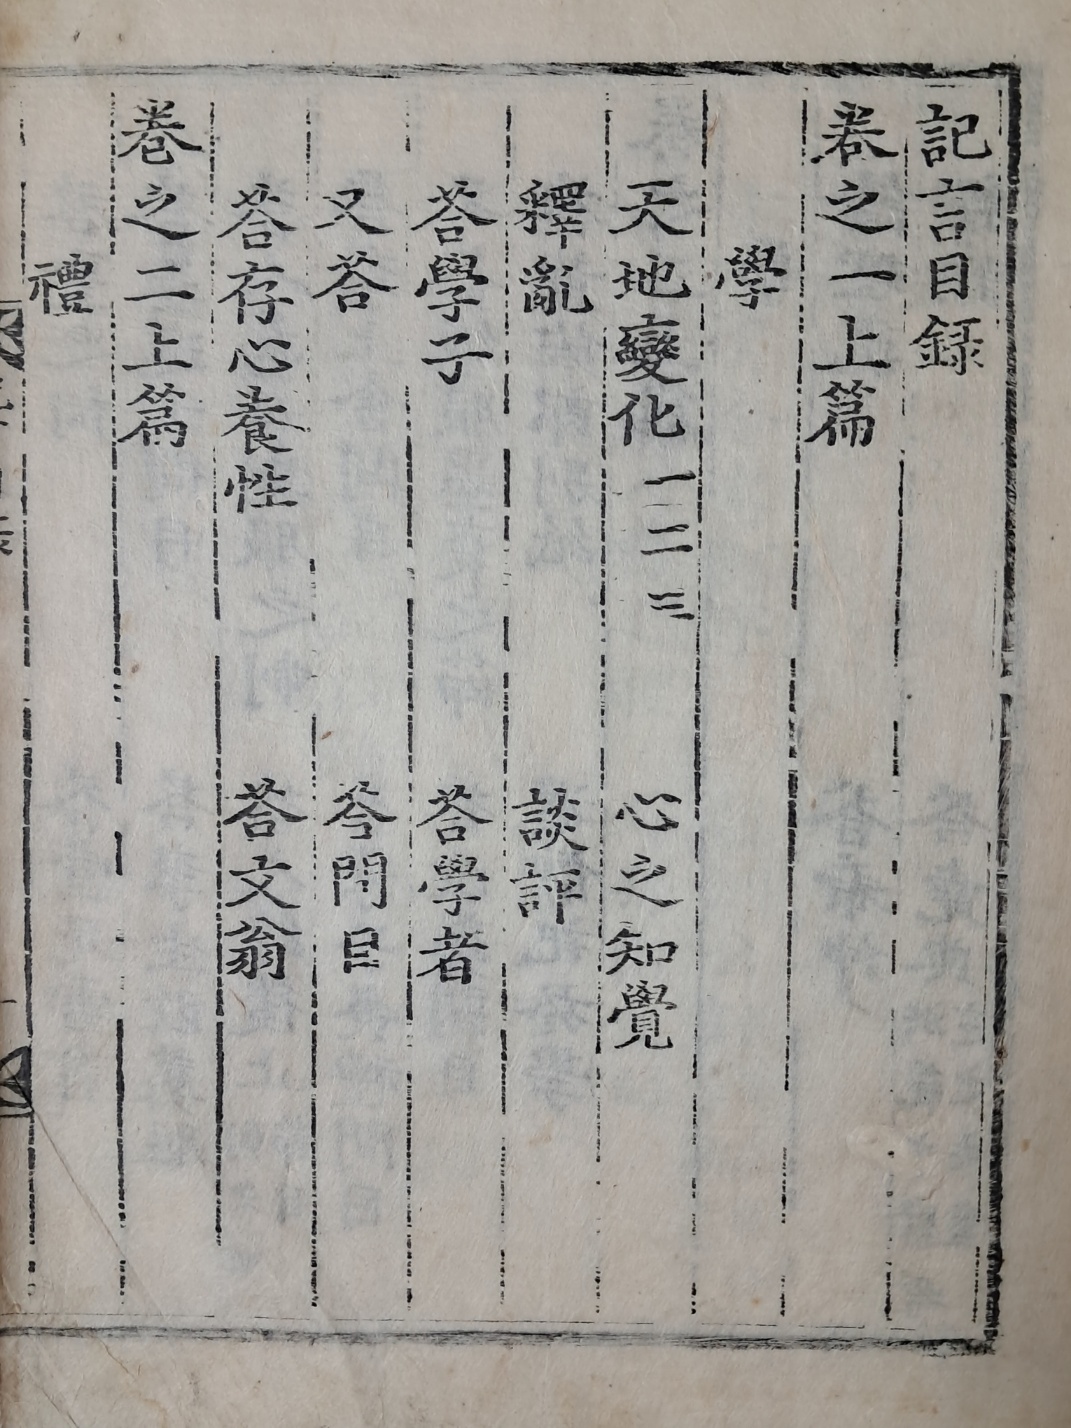 記言目録
卷之一上篇
學
天地變化一二三 心之知覺
釋亂 談評
荅學子 荅學者
又荅 荅問目
荅存心養性 荅文翁
卷之二上篇
禮